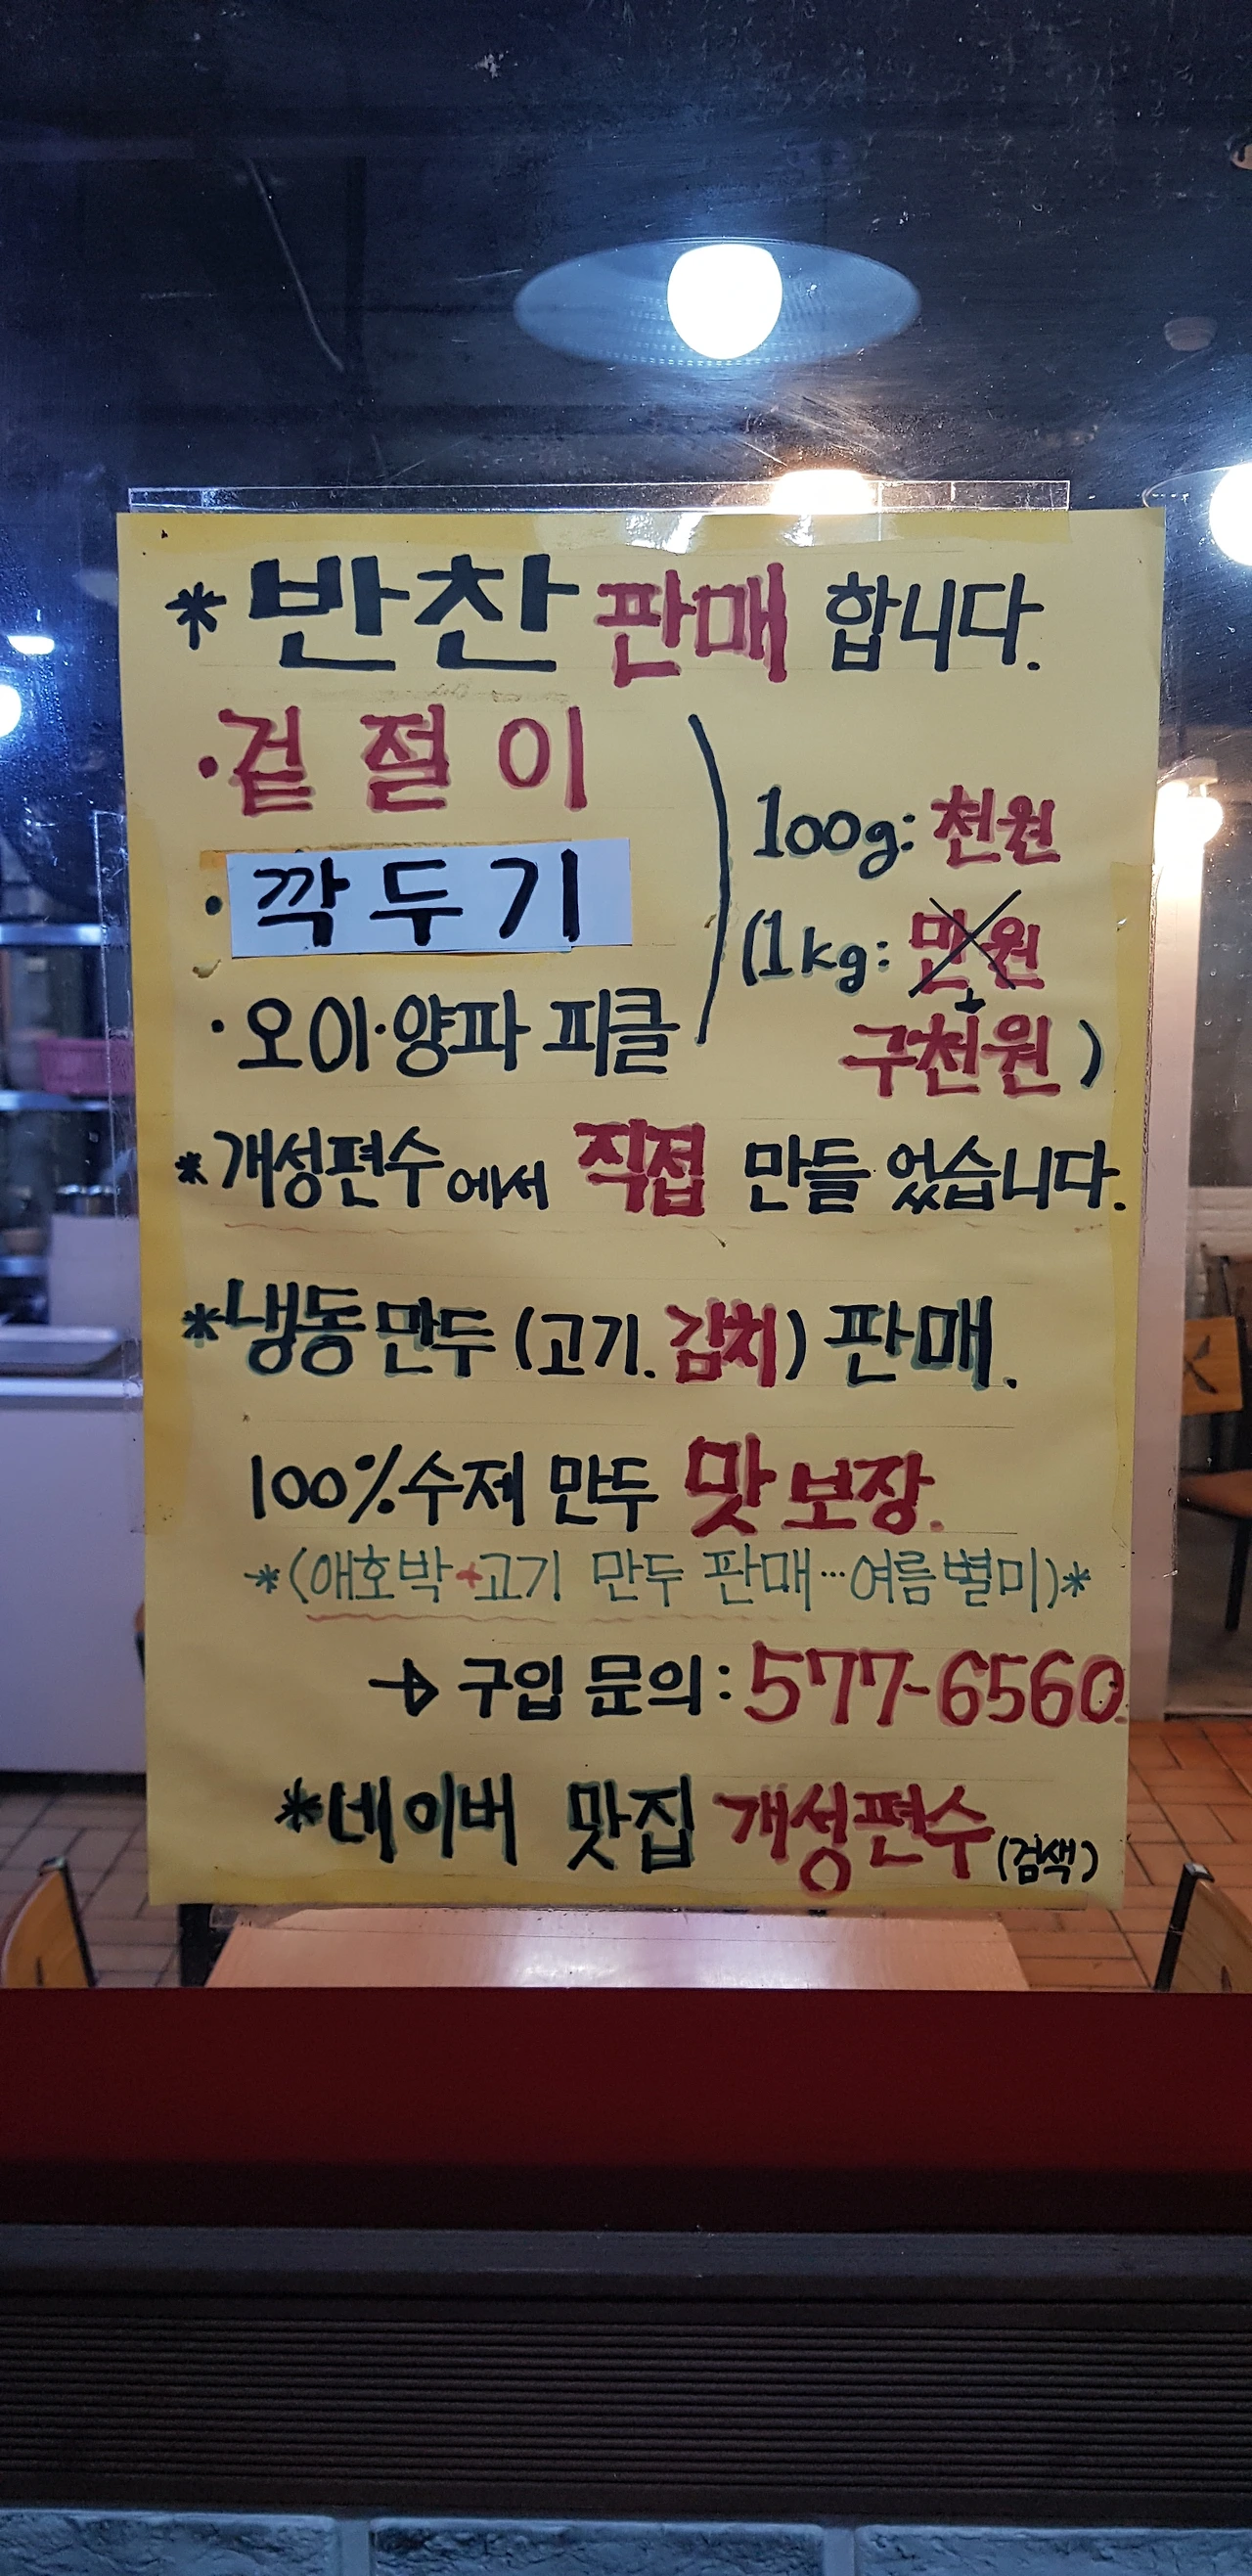 *반찬 판매 합니다.
·겉절이
100g: 천원
·깍두기
(1kg: 만원
·오이·양파 피클
구천원)
*개성편수에서 직접 만들었습니다.
*냉동만두 (고기.김치) 판매.
100% 수제 만두 맛보장.
*(애호박+고기 만두 판매...여름별미)*
→ 구입 문의: 577-6560.
*네이버 맛집 개성편수 (검색)